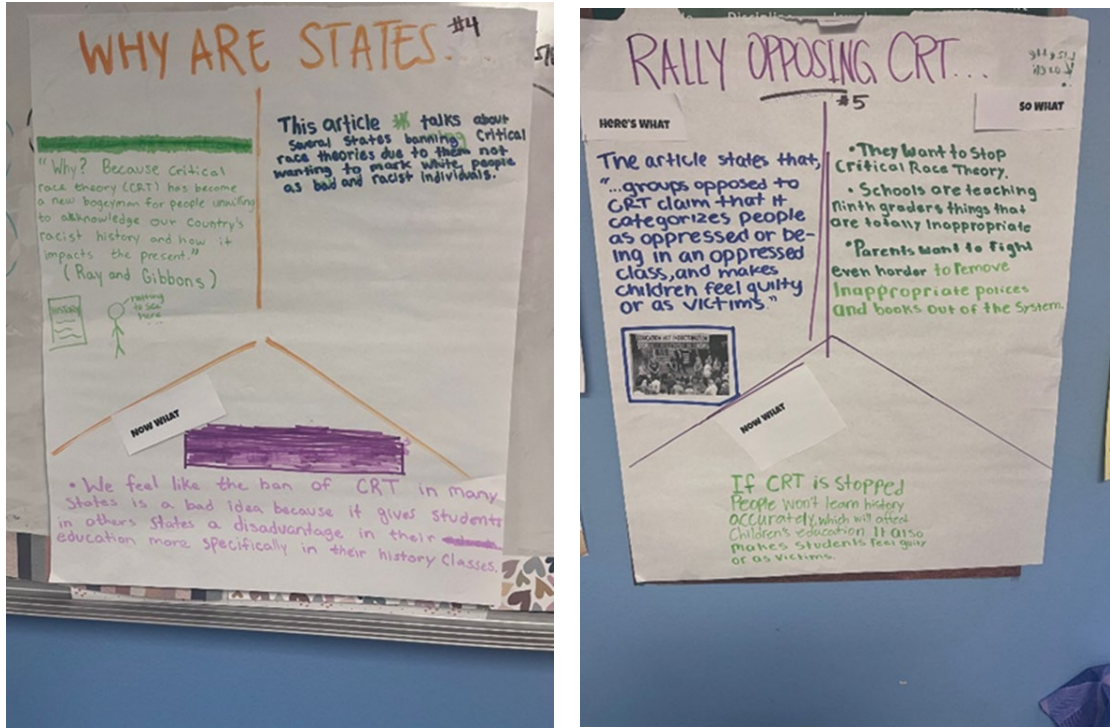 WHY ARE STATES...
#4
"Why? Because Critical
race theory (CRT) has become
a new bogeyman for people unwilling
to acknowledge our Country's
racist history and how it
impacts the present."
(Ray and Gibbons)
HISTORY
nothing
to see
here
...
This article talks about
Several States banning Critical
race theories due to them not
wanting to mark white people
as bad and racist individuals.
NOW WHAT
• We feel like the ban of CRT in many
States is a bad idea because it gives students
in others States a disadvantage in their
education more specifically in their history Classes.
RALLY OPPOSING CRT...
#5
HERE'S WHAT
The article states that,
"...groups opposed to
CRT claim that it
categorizes people
as oppressed or be-
ing in an oppressed
class, and makes
children feel guilty
or as victims."
SO WHAT
• They Want to Stop
Critical Race Theory.
• Schools are teaching
ninth graders things that
are totally Inappropriate
• Parents want to Fight
even harder to remove
Inappropriate polices
and books out of the System.
NOW WHAT
If CRT is stopped
People won't learn history
accurately, which will affect
Children's education It also
makes students feel guilty
or as victims.